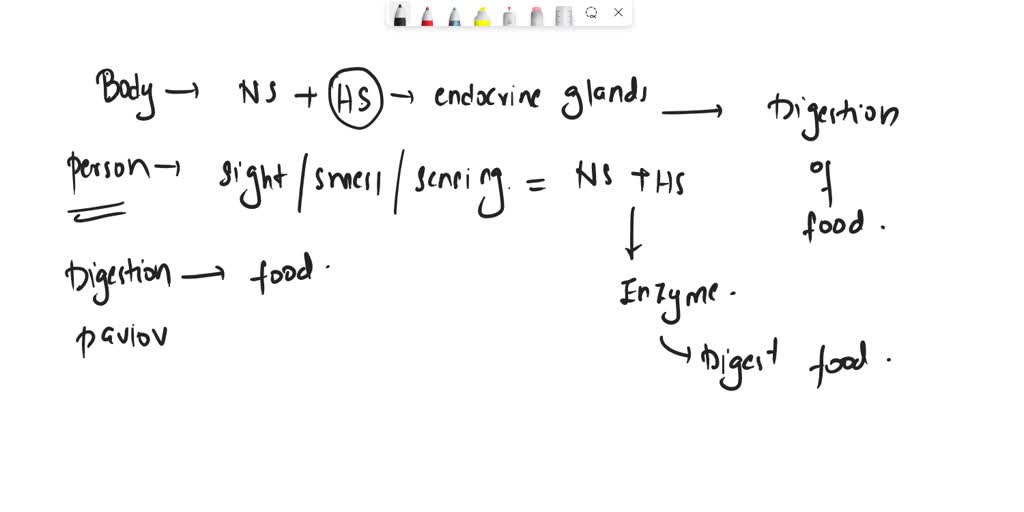 Body → NS + HS → endocrine glands → Digestion
of
food.
person → sight / smell / sensing. = NS + HS
↓
Enzyme.
↳ Digest food.
Digestion → food.
pavlov